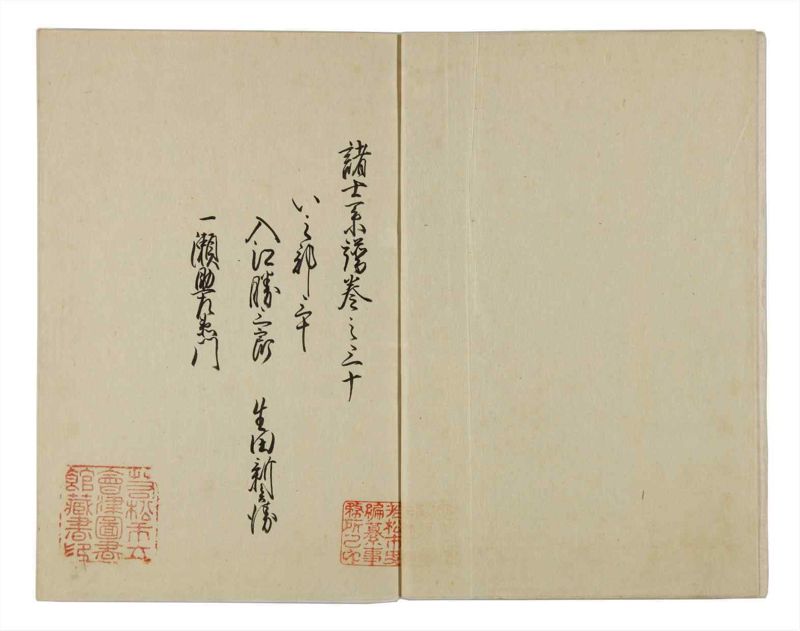 諸士系譜巻之三十
い之部三十
入江勝三郎
生田新兵衛
一瀬助左衛門
若松市史
編纂事
務所之印
若松市立
會津圖書
館藏書印